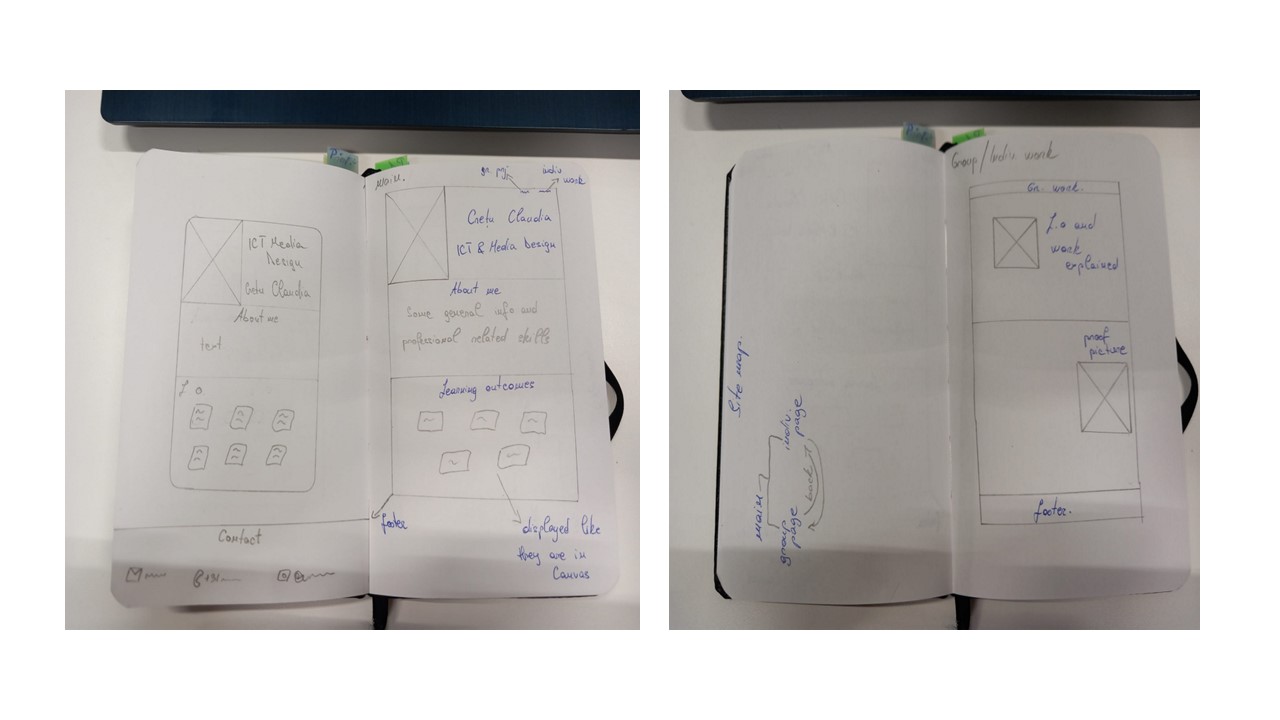 ICT Media
Design
Cretu Claudia
About me
text
L o
Contact
main.
gr. prj
indiv
work
Crețu Claudia
ICT & Media Design
About me
Some general info and
professional related skills
Learning outcomes
footer
displayed like
they are in
Canvas
Site map.
main
group
page
indiv.
page
back
Group/Indiv work
Gr. work.
L.o and
work
explained
proof
picture
footer.